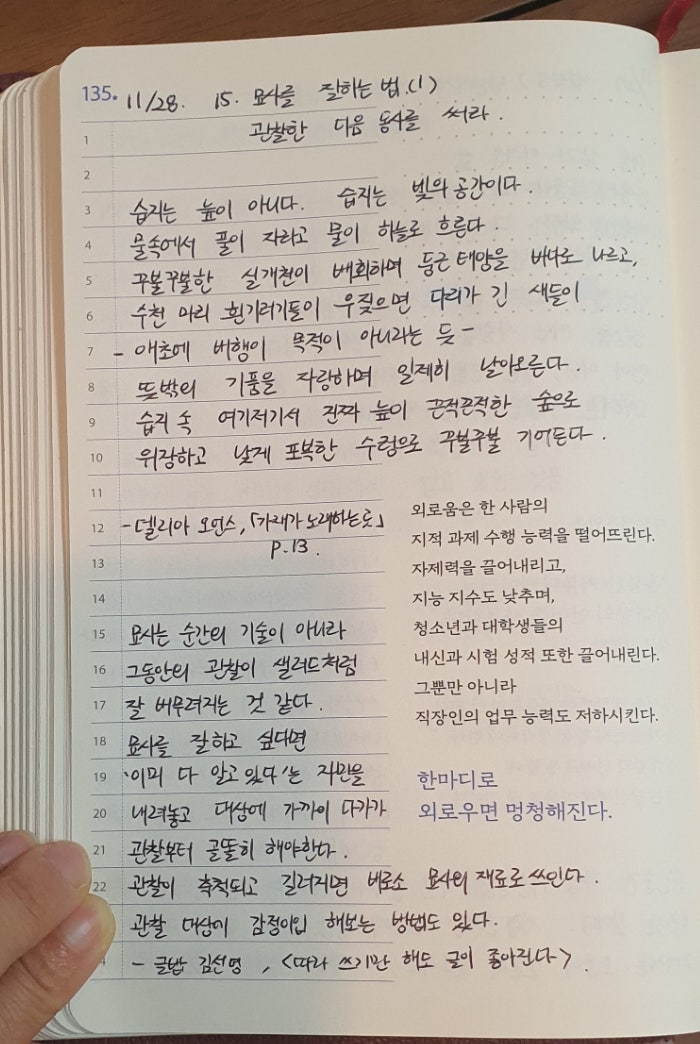 135. 11/28. 15. 묘사를 잘하는 법.(1)
1 관찰한 다음 동사를 써라.
2
3 습지는 늪이 아니다. 습지는 빛의 공간이다.
4 물속에서 풀이 자라고 물이 하늘로 흐른다.
5 꾸불꾸불한 실개천이 배회하며 둥근 태양을 바다로 나르고,
6 수천 마리 흰기러기들이 우짖으면 다리가 긴 새들이
7 - 애초에 비행이 목적이 아니라는 듯 -
8 뜻밖의 기품을 자랑하며 일제히 날아오른다.
9 습지 속 여기저기서 진짜 늪이 끈적끈적한 숲으로
10 위장하고 낮게 포복한 수렁으로 꾸불꾸불 기어든다.
11
12 - 델리아 오언스, 「가재가 노래하는 곳」
13 P.13.
14
15 묘사는 순간의 기술이 아니라
16 그동안의 관찰이 샐러드처럼
17 잘 버무려지는 것 같다.
18 묘사를 잘하고 싶다면
19 '이미 다 알고 있다'는 자만을
20 내려놓고 대상에 가까이 다가가
21 관찰부터 골똘히 해야한다.
22 관찰이 축적되고 길러지면 비로소 묘사의 재료로 쓰인다.
관찰 대상에 감정이입 해보는 방법도 있다.
- 글밥 김선영, <따라 쓰기만 해도 글이 좋아진다>.
외로움은 한 사람의
지적 과제 수행 능력을 떨어뜨린다.
자제력을 끌어내리고,
지능 지수도 낮추며,
청소년과 대학생들의
내신과 시험 성적 또한 끌어내린다.
그뿐만 아니라
직장인의 업무 능력도 저하시킨다.
한마디로
외로우면 멍청해진다.